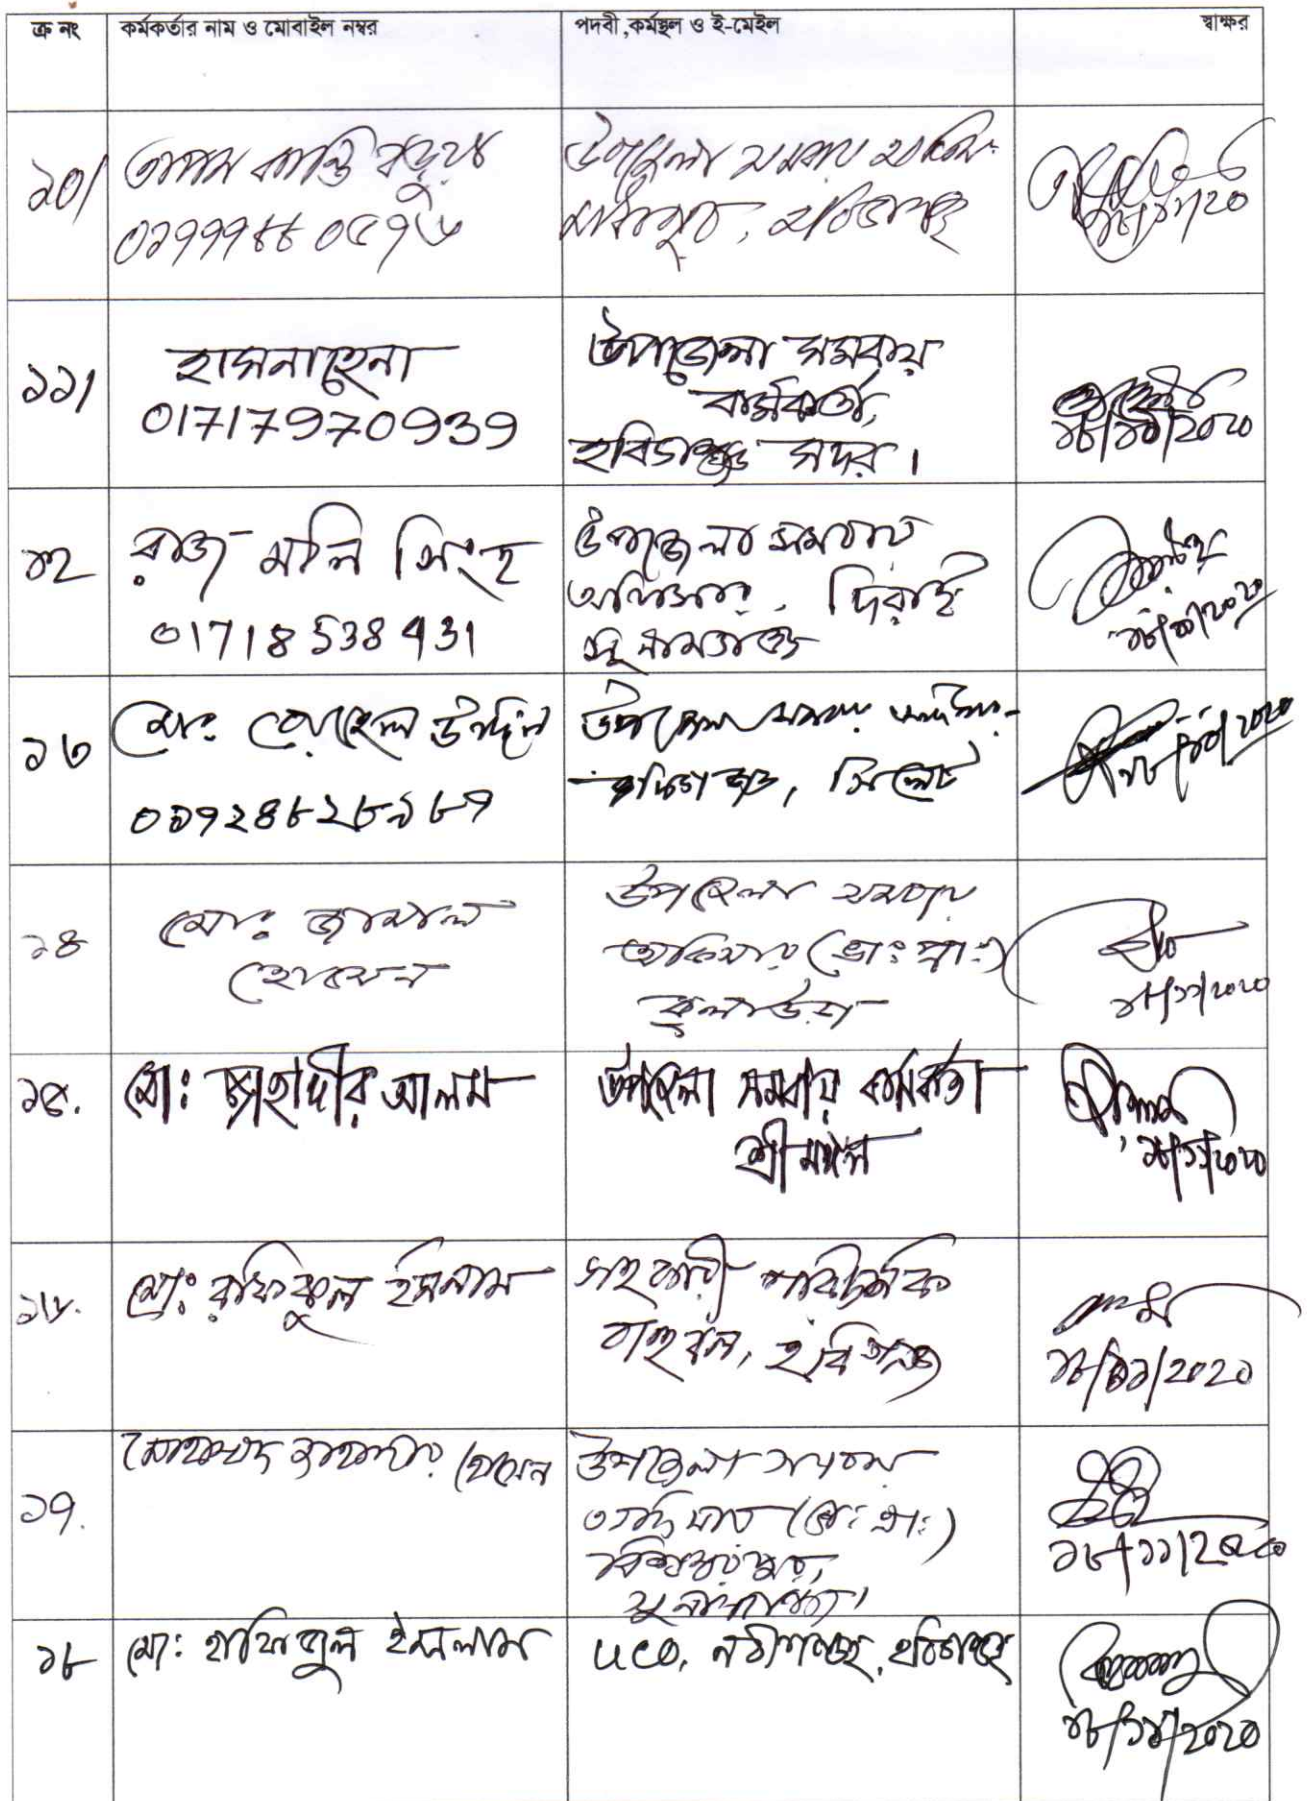 ক্র নং কর্মকর্তার নাম ও মোবাইল নম্বর পদবী ,কর্মস্থল ও ই-মেইল স্বাক্ষর
১০/ তাপস কান্তি বড়ুয়া উপজেলা সমবায় অফিস
মাধবপুর, হবিগঞ্জ
১১/ হাসনাহেনা
01717970939
উপজেলা সমবায়
কর্মকর্তা,
হবিগঞ্জ সদর ।
১৮/১১/২০২০
১২ রাজ মনি সিংহ
01718538431
উপজেলা সমবায়
অফিসার, দিরাই
সুনামগঞ্জ
১৮/১১/২০২০
১৩ মোঃ সোহেল উদ্দিন
০১৭২৪৮২৮৯৮৭
উপজেলা সমবায় অফিসার
সিলেট
১৮/১১/২০২০
১৪ মোঃ জামাল
হোসেন
উপজেলা সমবায়
অফিসার (ভাঃ প্রাঃ)
কুলাউড়া
১৮/১১/২০২০
১৫. মোঃ জাহাঙ্গীর আলম উপজেলা সমবায় কর্মকর্তা
শ্রীমঙ্গল
১৮/১১/২০২০
১৬. মোঃ রফিকুল ইসলাম সহকারী পরিদর্শক
বাহুবল, হবিগঞ্জ
১৮/১১/২০২০
১৭. মোহাম্মদ হোসেন
উপজেলা সমবায়
অফিসার (ভাঃ প্রাঃ)
বিশ্বম্ভরপুর,
সুনামগঞ্জ।
১৮/১১/২০২০
১৮ মোঃ হাফিজুল ইসলাম UCO, নবীগঞ্জ, হবিগঞ্জ
১৮/১১/২০২০